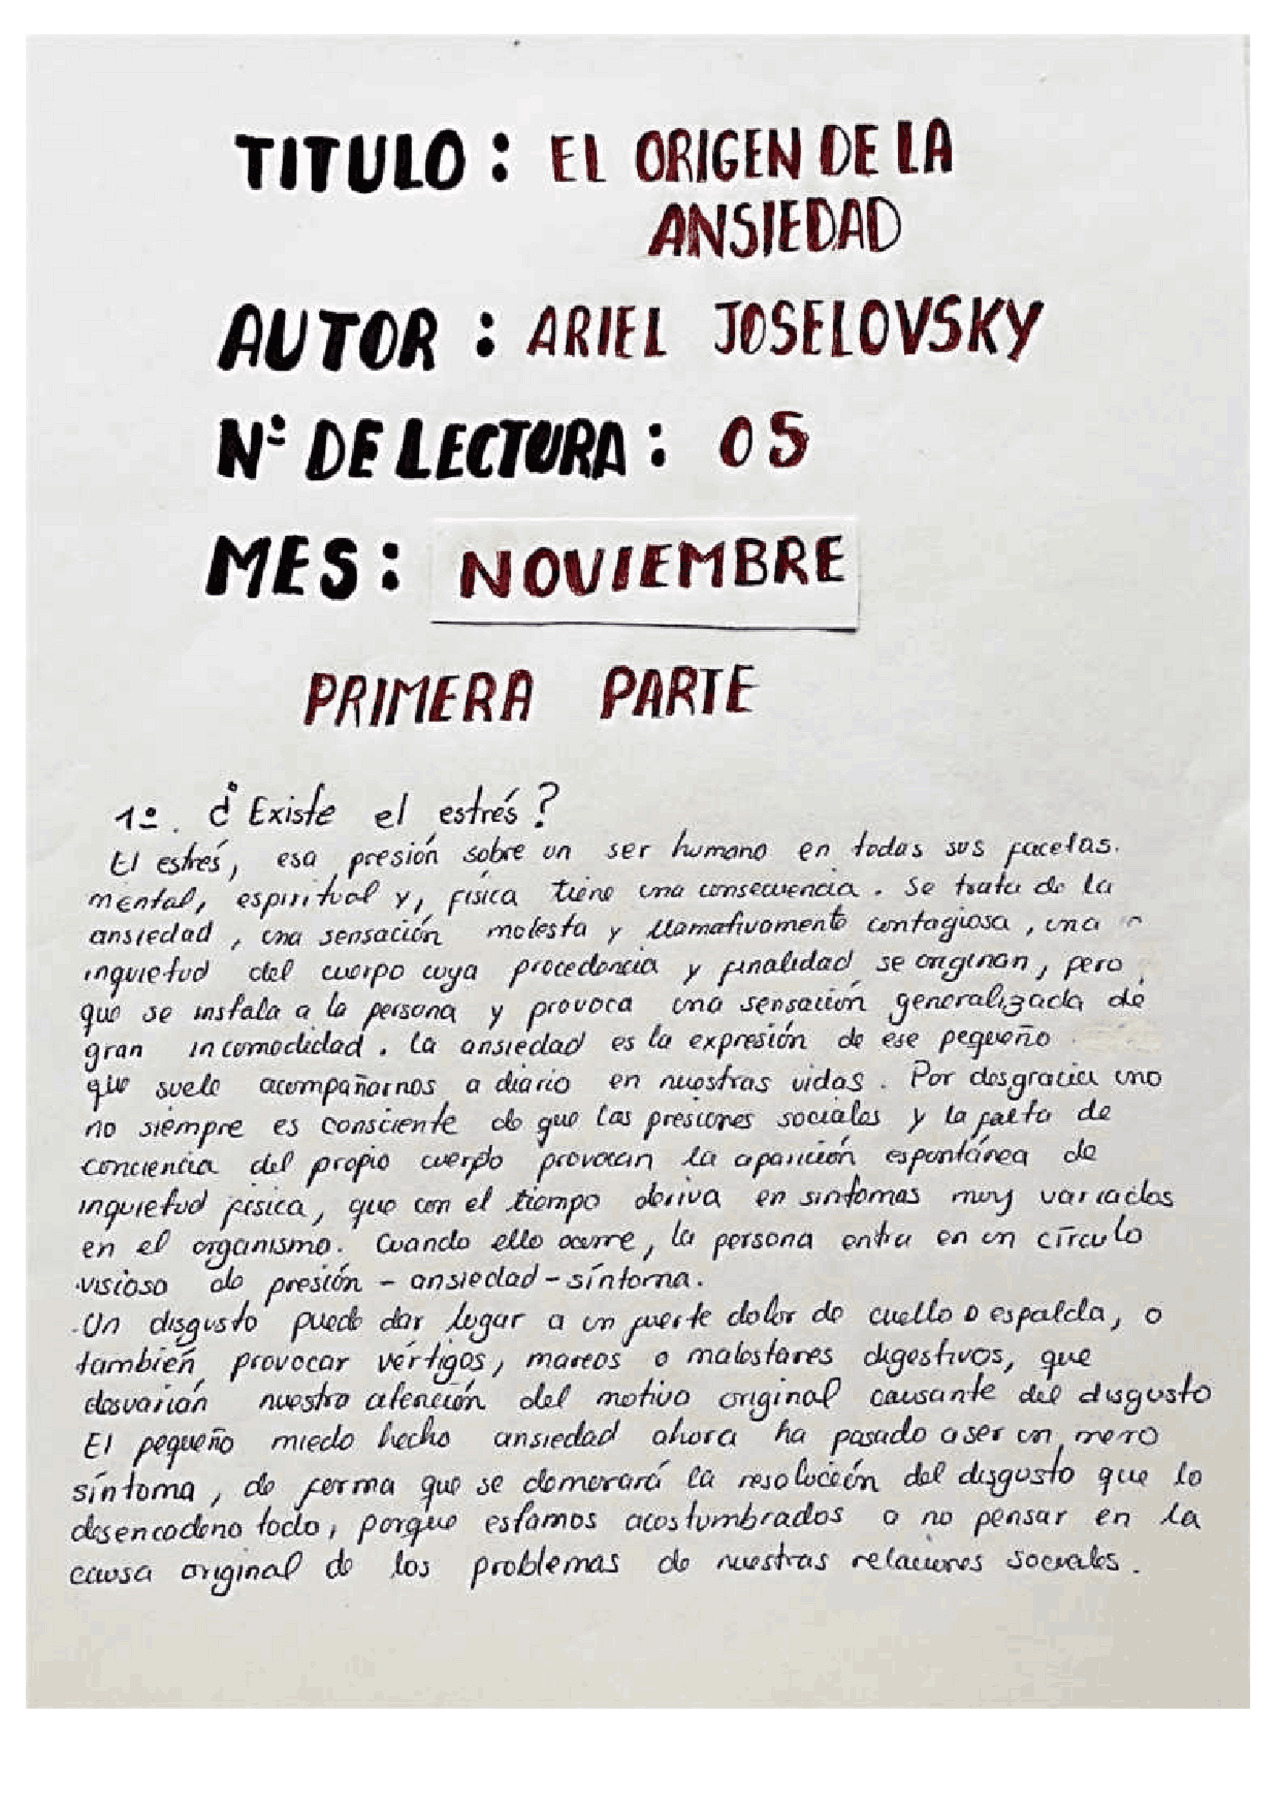 TITULO : EL ORIGEN DE LA
ANSIEDAD
AUTOR : ARIEL JOSELOVSKY
Nº DE LECTURA : 05
MES : NOVIEMBRE
PRIMERA PARTE
1º. ¿Existe el estrés?
El estrés, esa presión sobre un ser humano en todas sus facetas.
mental, espiritual y, física tiene una consecuencia. Se trata de la
ansiedad, una sensación molesta y llamativamente contagiosa, una
inquietud del cuerpo cuya procedencia y finalidad se originan, pero
que se instala a la persona y provoca una sensación generalizada de
gran incomodidad. La ansiedad es la expresión de ese pequeño
que suele acompañarnos a diario en nuestras vidas. Por desgracia uno
no siempre es consciente de que las presiones sociales y la falta de
conciencia del propio cuerpo provocan la aparición espontánea de
inquietud física, que con el tiempo deriva en sintomas muy variados
en el organismo. Cuando ello ocurre, la persona entra en un círculo
visioso de presión - ansiedad - síntoma.
-Un disgusto puede dar lugar a un fuerte dolor de cuello o espalda, o
también, provocar vértigos, mareos o malestares digestivos, que
desvarián nuestra atención del motivo original causante del disgusto
El pequeño miedo hecho ansiedad ahora ha pasado a ser un mero
síntoma, de forma que se demorará la resolución del disgusto que lo
desencadeno todo, porque estamos acostumbrados a no pensar en la
causa original de los problemas de nuestras relaciones sociales.